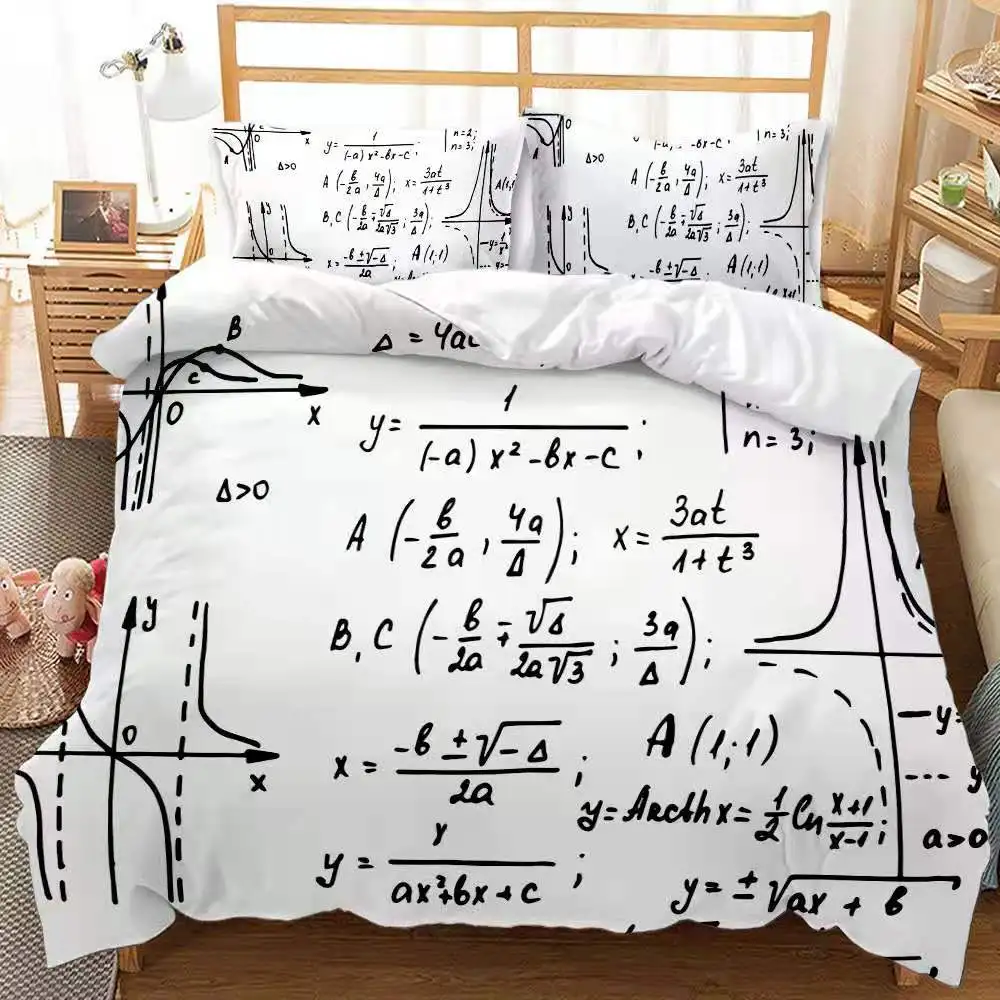 y= 1/((-a) x² -bx-c) ; n=2; n=3;
Δ>0
A (-b/2a , 4a/Δ); x= 3at/(1+t³)
B, C (-b/2a ∓ √Δ/(2a√3) ; 3a/Δ);
x= (-b ± √-Δ)/2a ; A(1;1)
y= 1/((-a) x² -bx-c) ; n=3;
Δ>0
A (-b/2a , 4a/Δ); x= 3at/(1+t³)
B, C (-b/2a ∓ √Δ/(2a√3) ; 3a/Δ);
-b ± √-Δ A(1;1)
Δ = 4ac
B
C
O x
y= 1/((-a) x² -bx-c) ; n= 3;
Δ>0
A (-b/2a , 4a/Δ); x= 3at/(1+t³)
B, C (-b/2a ∓ √Δ/(2a√3) ; 3a/Δ);
y
O
x
x = (-b ± √-Δ)/2a ; A (1;1)
y=Arcth x= 1/2 ln (x+1)/(x-1) ;
y=
y
a>0
y = x/(ax²+bx+c) ;
y= ± √ax + b